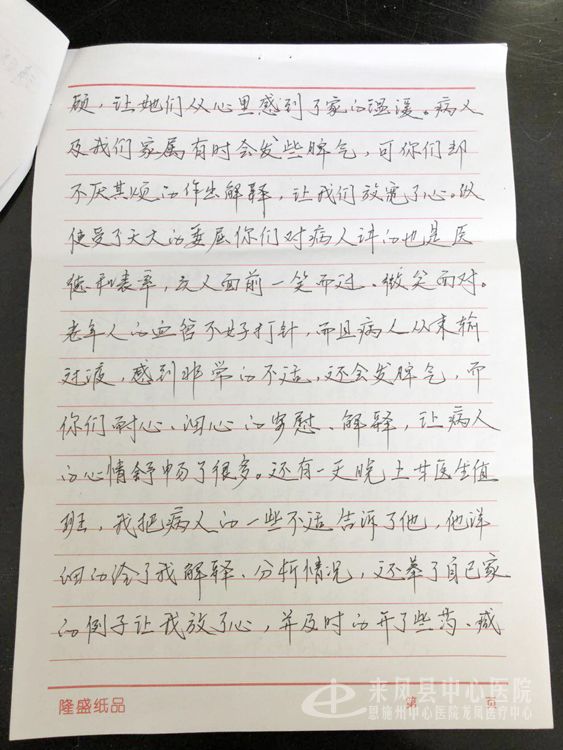 顾，让她们从心里感到了家的温暖。病人
及我们家属有时会发些脾气，可你们却
不厌其烦的作出解释，让我们放宽了心。纵
使受了天大的委屈你们对病人讲的也是医
德和表率，在人面前一笑而过、微笑面对。
老年人的血管不好打针，而且病人从未输
过液，感到非常的不适，还会发脾气，而
你们耐心、细心的安慰、解释，让病人
的心情舒畅了很多。还有一天晚上甘医生值
班，我把病人的一些不适告诉了他，他详
细的给了我解释、分析情况，还举了自己家
的例子让我放了心，并及时的开了些药、减
隆盛纸品
第 页
来凤县中心医院
恩施州中心医院龙凤医疗中心